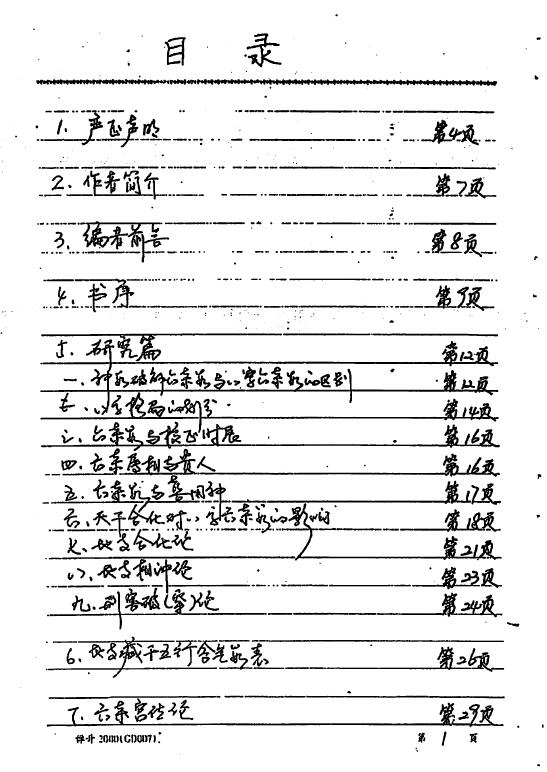 目 录
1. 严正声明 第4页
2. 作者简介 第7页
3. 编者前言 第8页
4. 书序 第9页
5. 研究篇 第12页
一、神数破解六亲数与八字六亲数的区别 第12页
八字格局的划分 第14页
三、六亲数与校正时辰 第16页
四、六亲属相与贵人 第16页
五、六亲数与喜用神 第17页
六、天干合化对八字六亲数的影响 第18页
七、地支合化论 第21页
八、地支相冲论 第23页
九、刑害破(穿)论 第24页
6. 地支藏干五行含气数表 第26页
7. 六亲宫位论 第29页
2000(GD007).
第 1 页